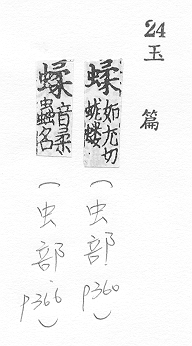 24
玉篇
蝚 如尤切 蛖螻
(虫部 p360)
蝚 音柔 蟲名
(虫部 p366)